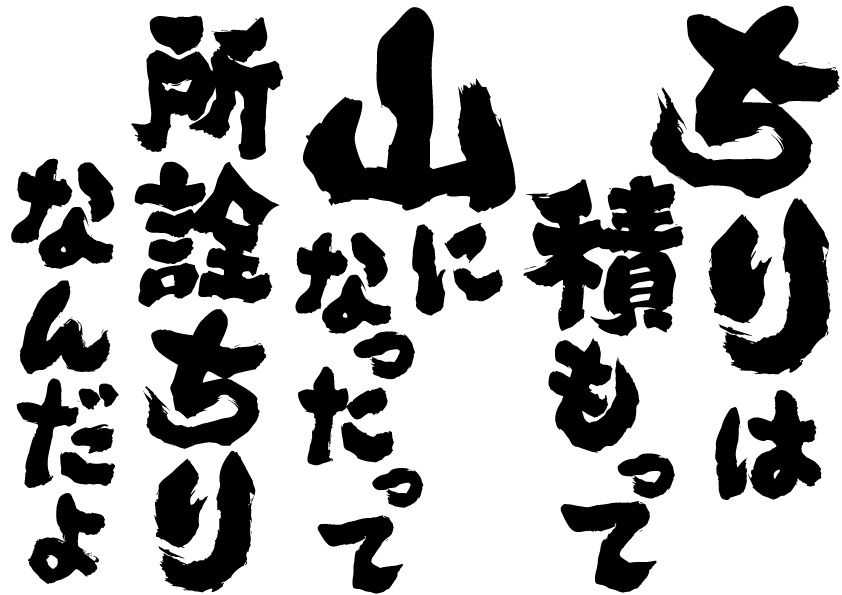 ちりは
積もって
山に
なったって
所詮ちり
なんだよ